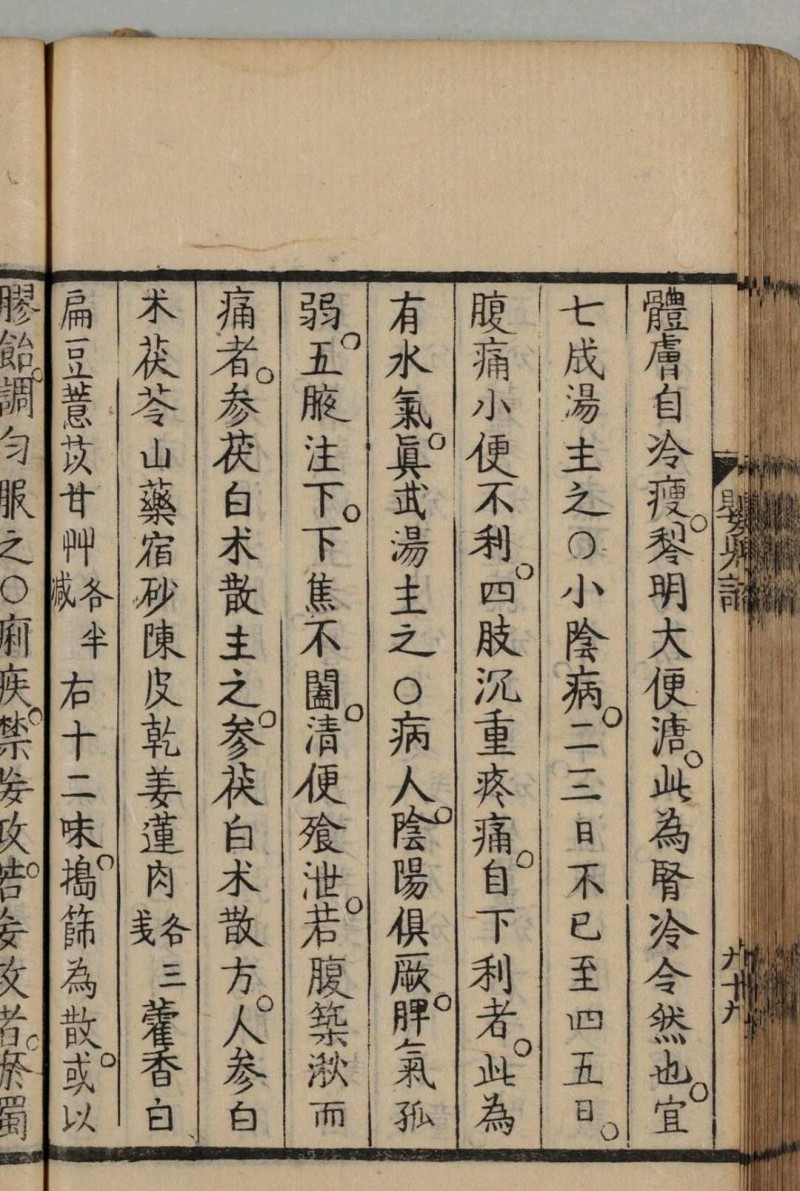 體膚自冷瘦。黎明大便溏。此為腎冷令然也。宜
七成湯主之〇小陰病。二三日不已至四五日。
腹痛小便不利。四肢沉重疼痛。自下利者。此為
有水氣。眞武湯主之〇病人陰。陽俱厥脾。氣孤
弱。五腋注下。下焦不闔。清便飱泄。若腹築湫而
痛者。参茯白朮散主之。参茯白朮散方。人参白
朮茯苓山藥宿砂陳皮乾姜蓮肉各三戔藿香白
扁豆薏苡甘艸各半減右十二味。搗篩為散。或以
膠飴。調勻服之〇痢疾。禁妄攻。若妄攻者。於蜀